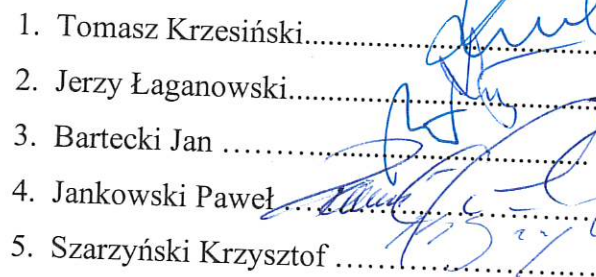 1. Tomasz Krzesiński..........................
2. Jerzy Łaganowski..........................
3. Bartecki Jan ..........................
4. Jankowski Paweł..........................
5. Szarzyński Krzysztof ..........................